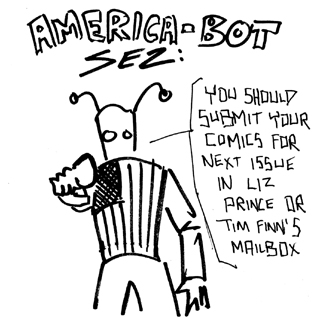 AMERICA-BOT
SEZ:
YOU SHOULD
SUBMIT YOUR
COMICS FOR
NEXT ISSUE
IN LIZ
PRINCE OR
TIM FINN'S
MAILBOX